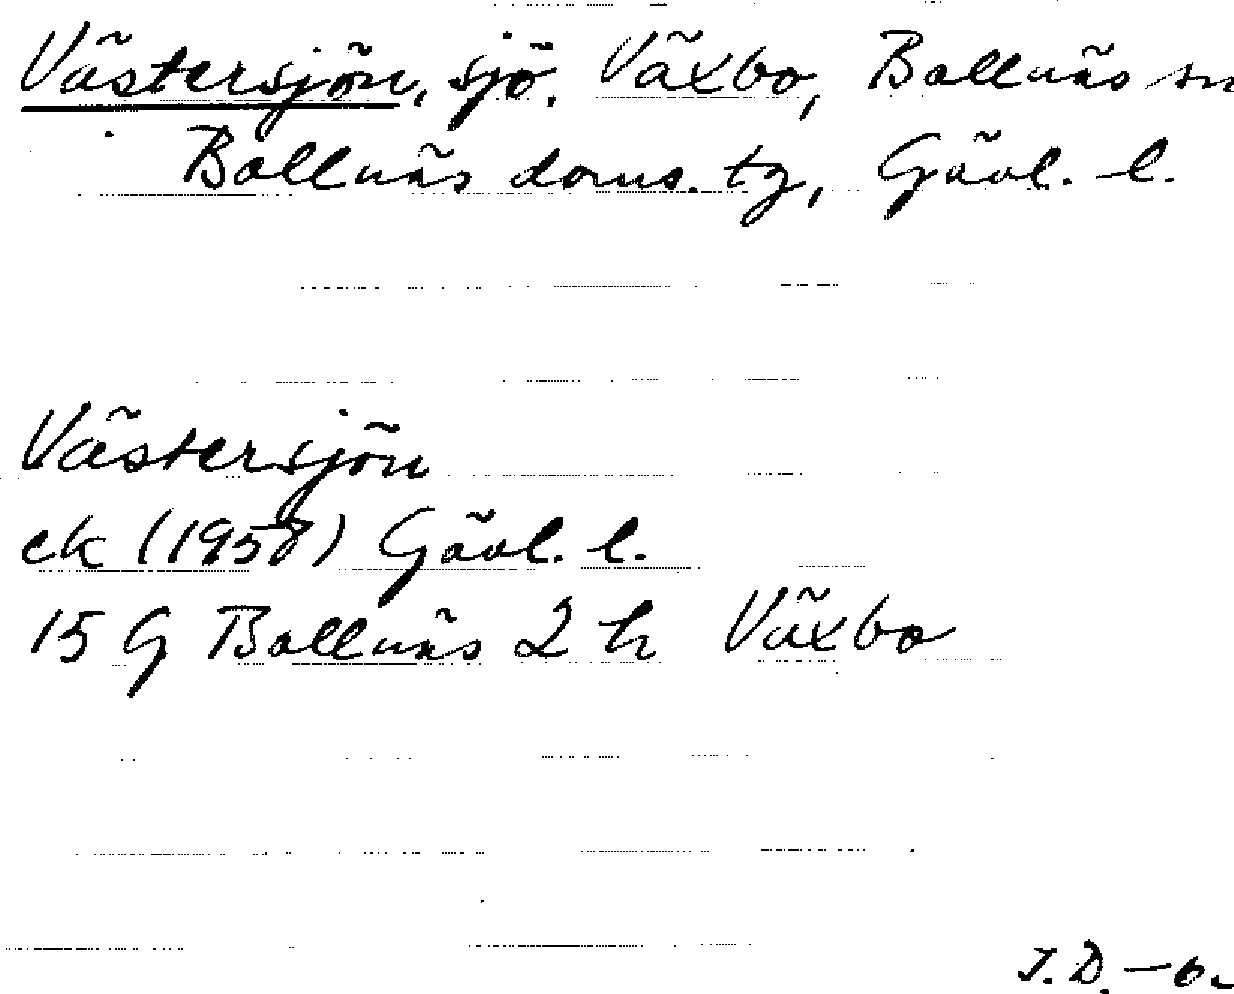 Västersjön, sjö. Växbo, Bollnäs sn
Bollnäs doms. tg, Gävl. l.
Västersjön
ek (1958) Gävl. l.
15 G Bollnäs 2 h Växbo
J.D.